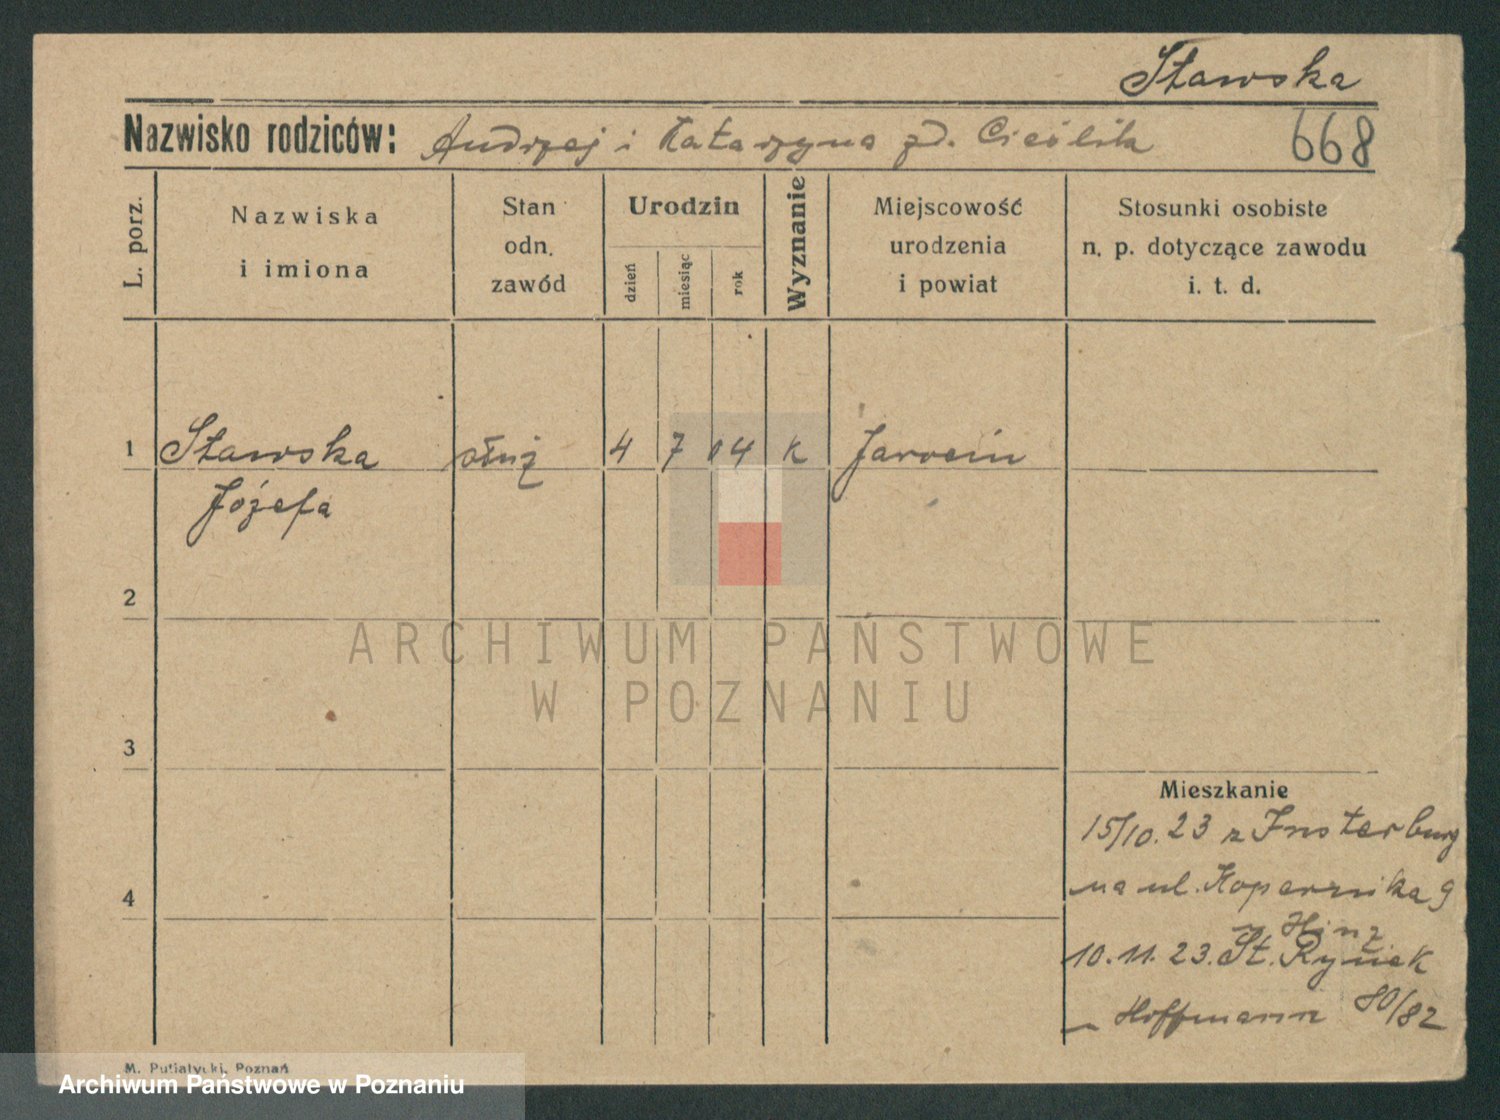 Stawska
Nazwisko rodziców: Andrzej i Katarzyna zd. Cieślik 668
L. porz.
Nazwiska
i imiona
Stan
odn.
zawód
Urodzin
dzień
miesiąc
rok
Wyznanie
Miejscowość
urodzenia
i powiat
Stosunki osobiste
n. p. dotyczące zawodu
i. t. d.
1 Stawska służ 4 7 04 k Jarocin
Józefa
2
ARCHIWUM PAŃSTWOWE
W POZNANIU
3
Mieszkanie
15/10.23 z Insterburg
4
na ul. Kopernika 9
u Hinz
10.11.23. St. Rynek
80/82
u Hoffmann
M. Putiatycki, Poznań
Archiwum Państwowe w Poznaniu